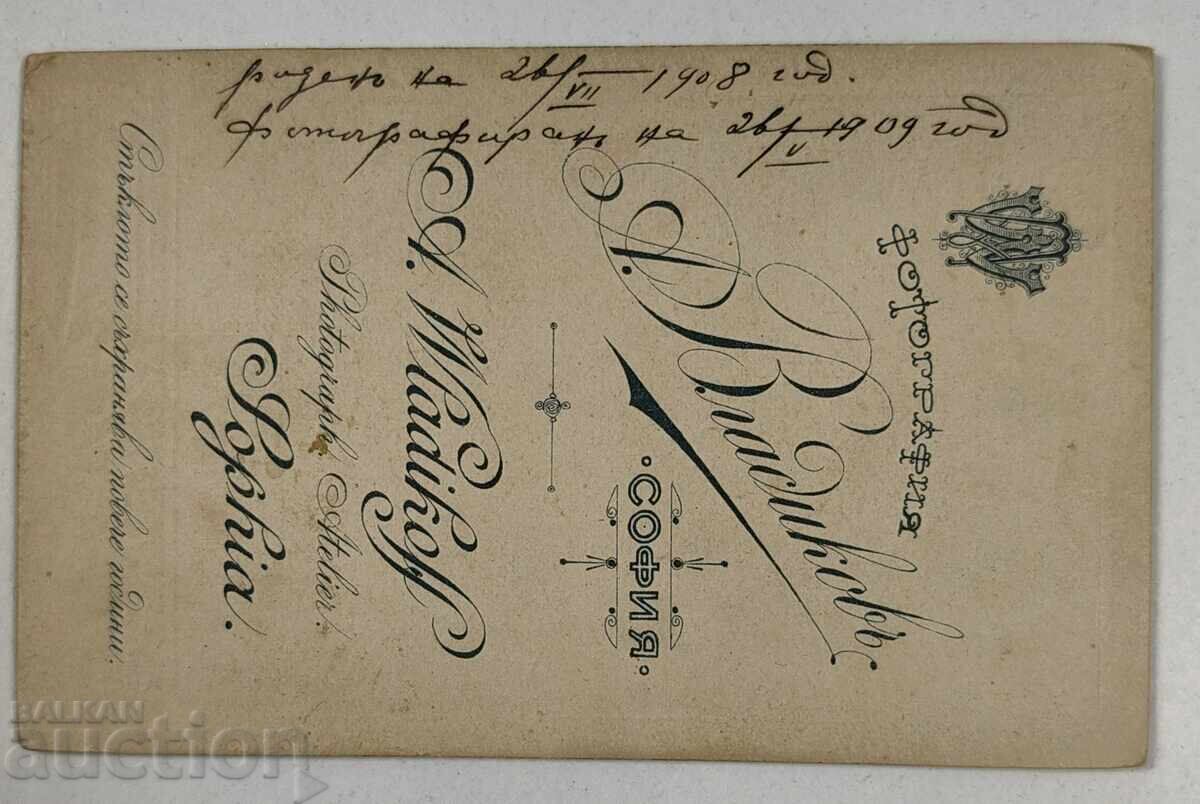 роденъ на 28/VII 1908 год.
фотографиранъ на 28/V 1909 год
ФОТОГРАФИЯ
А. Владиковъ
·СОФИЯ·
A. Wladikoff
Photograph. Atelier.
Sophia.
Стъклото се съхранява повече години.
BALKAN
auction